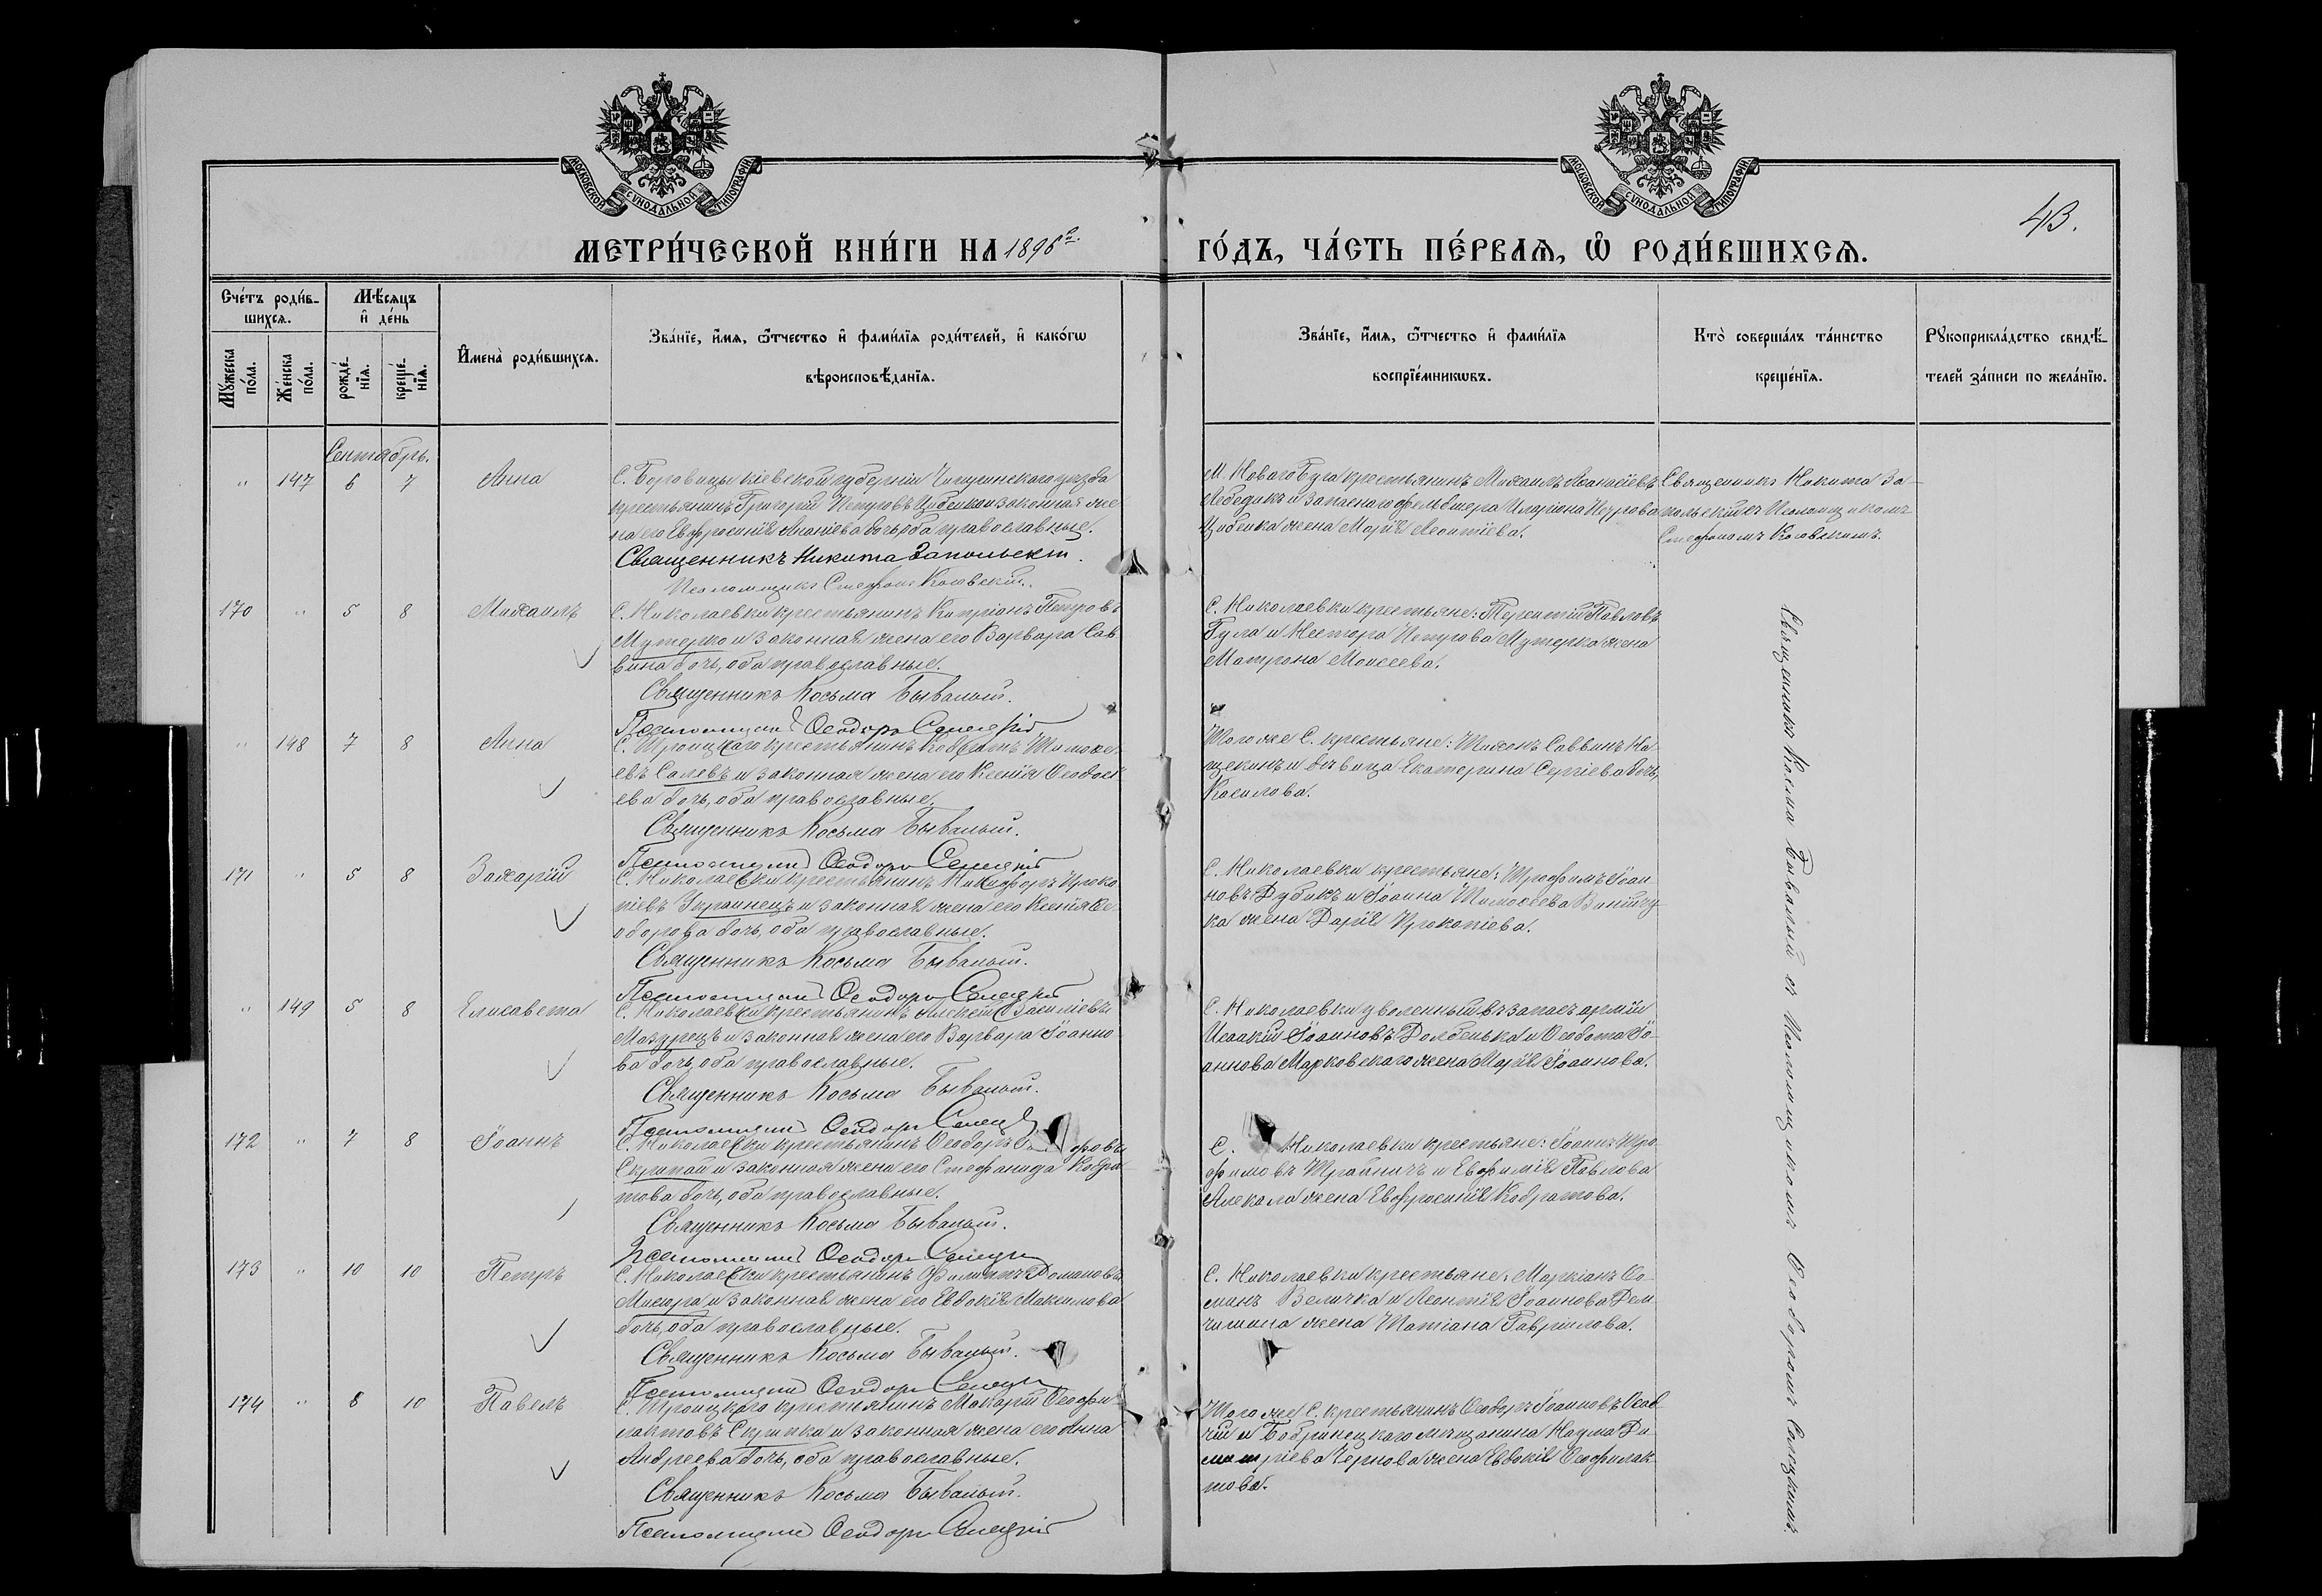 МОСКОВСКОЙ СѴНОДАЛЬНОЙ ТИПОГРАФІИ
МОСКОВСКОЙ СѴНОДАЛЬНОЙ ТИПОГРАФІИ
43.
МЕТРИ́ЧЕСКОЙ КНИ́ГИ НА 1896 г.
ГО́ДЪ, ЧА́СТЬ ПЕ́РВАѦ, Ѡ҆ РОДИ́ВШИХСѦ.
Сче́тъ роди́в-
шихсѧ.
Мѣ́сѧцъ
и҆ де́нь
Мꙋ́жеска
по́ла.
Же́нска
по́ла.
рожде́-
нїѧ.
креще́-
нїѧ.
И҆мена̀ роди́вшихсѧ.
Зва́нїе, и҆́мѧ, ѻ҆́тчество и҆ фами́лїѧ роди́телей, и҆ како́гѡ
вѣроисповѣ́данїѧ.
Зва́нїе, и҆́мѧ, ѻ҆́тчество и҆ фами́лїѧ
воспрїе́мникѡвъ.
Кто̀ соверша́лъ та́инство
креще́нїѧ.
Рꙋкоприкла́дство свидѣ́-
телей за́писи по жела́нїю.
Сентябрь.
" 147 6 7 Анна
С. Боровицы Кіевской губерніи Чигиринскаго уѣзда
крестьянинъ Григорій Петровъ Цибенко и законная же
на его Евфросинія Ананіева дочь, оба православные.
Священникъ Никита Запольскій.
Псаломщикъ Стефанъ Косовскій.
М. Новаго Буга крестьянинъ Михаилъ Аѳанасіевъ
Лебедикъ и запаснаго фельдшера Иларіона Петрова
Цибенка жена Марія Леонтіева.
Священникъ Никита За-
польскій съ Псаломщикомъ
Стефаномъ Косовскимъ.
170 " 5 8 Михаилъ
С. Николаевки крестьянинъ Кипріанъ Петровъ
Мутерко и законная жена его Варвара Сав
вина дочь, оба православные.
Священникъ Косьма Бывалый.
Псаломщикъ Ѳеодоръ Селецкій
С. Николаевки крестьяне: Терентій Павловъ
Гула и Нестора Петрова Мутерка жена
Матрона Моисеева.
" 148 7 8 Анна
С. Троицкаго крестьянинъ Кодратъ Тимоѳе-
евъ Салевъ и законная жена его Ксенія Ѳеодосі
ева дочь, оба православные.
Священникъ Косьма Бывалый.
Псаломщикъ Ѳеодоръ Селецкій
Того же С. крестьяне: Тихонъ Саввинъ На-
щекинъ и дѣвица Екатерина Сергіева дочь,
Касилова.
171 " 5 8 Захарій
С. Николаевки крестьянинъ Никифоръ Проко
піевъ Украинецъ и законная жена его Ксенія Ѳе-
одорова дочь, оба православные.
Священникъ Косьма Бывалый.
Псаломщикъ Ѳеодоръ Селецкій
С. Николаевки крестьяне: Трофимъ Іоан-
новъ Дубикъ и Іоанна Тимоѳеева Винničу-
ка жена Дарія Прокопіева.
" 149 5 8 Елисавета
С. Николаевки крестьянинъ Алексій Василіевъ
Мазурецъ и законная жена его Варвара Іоанно
ва дочь, оба православные.
Священникъ Косьма Бывалый.
Псаломщикъ Ѳеодоръ Селецкій
С. Николаевки уволенный въ запасъ арміи
Исаакій Іоанновъ Долбенька и Ѳеодота Іо-
аннова Марковскаго жена Марія Іоаннова.
172 " 7 8 Іоаннъ
С. Николаевки крестьянинъ Ѳеодоръ
Скрипай и законная жена его Стефанида Кодра
това дочь, оба православные.
Священникъ Косьма Бывалый.
Псаломщикъ Ѳеодоръ Селецкій
С. Николаевки крестьяне: Іоаннъ Тро
фимовъ Трабничъ и Евфимія Павлова
Алекала жена Евфросинія Кодратова.
173 " 10 10 Петръ
С. Николаевки крестьянинъ Филиппъ Романовъ
Мисюра и законная жена его Евдокія Максимова
дочь, оба православные.
Священникъ Косьма Бывалый.
Псаломщикъ Ѳеодоръ Селецкій
С. Николаевки крестьяне: Маркіанъ Ѳо-
минъ Величка и Леонтія Іоаннова Дем
чишина жена Татіана Гавріилова.
174 " 8 10 Павелъ
С. Троицкаго крестьянинъ Макарій Ѳеофи-
лактовъ Скрипка и законная жена его Анна
Андреева дочь, оба православные.
Священникъ Косьма Бывалый.
Псаломщикъ Ѳеодоръ Селецкій
Того же С. крестьянинъ Ѳеодоръ Іоанновъ
и Бобринецкаго мѣщанина Наума Ди-
митріева Чернова жена Евдокія Ѳеофилак-
това.
Священникъ Косьма Бывалый съ Псаломщикомъ Ѳеодоромъ Селецкимъ.